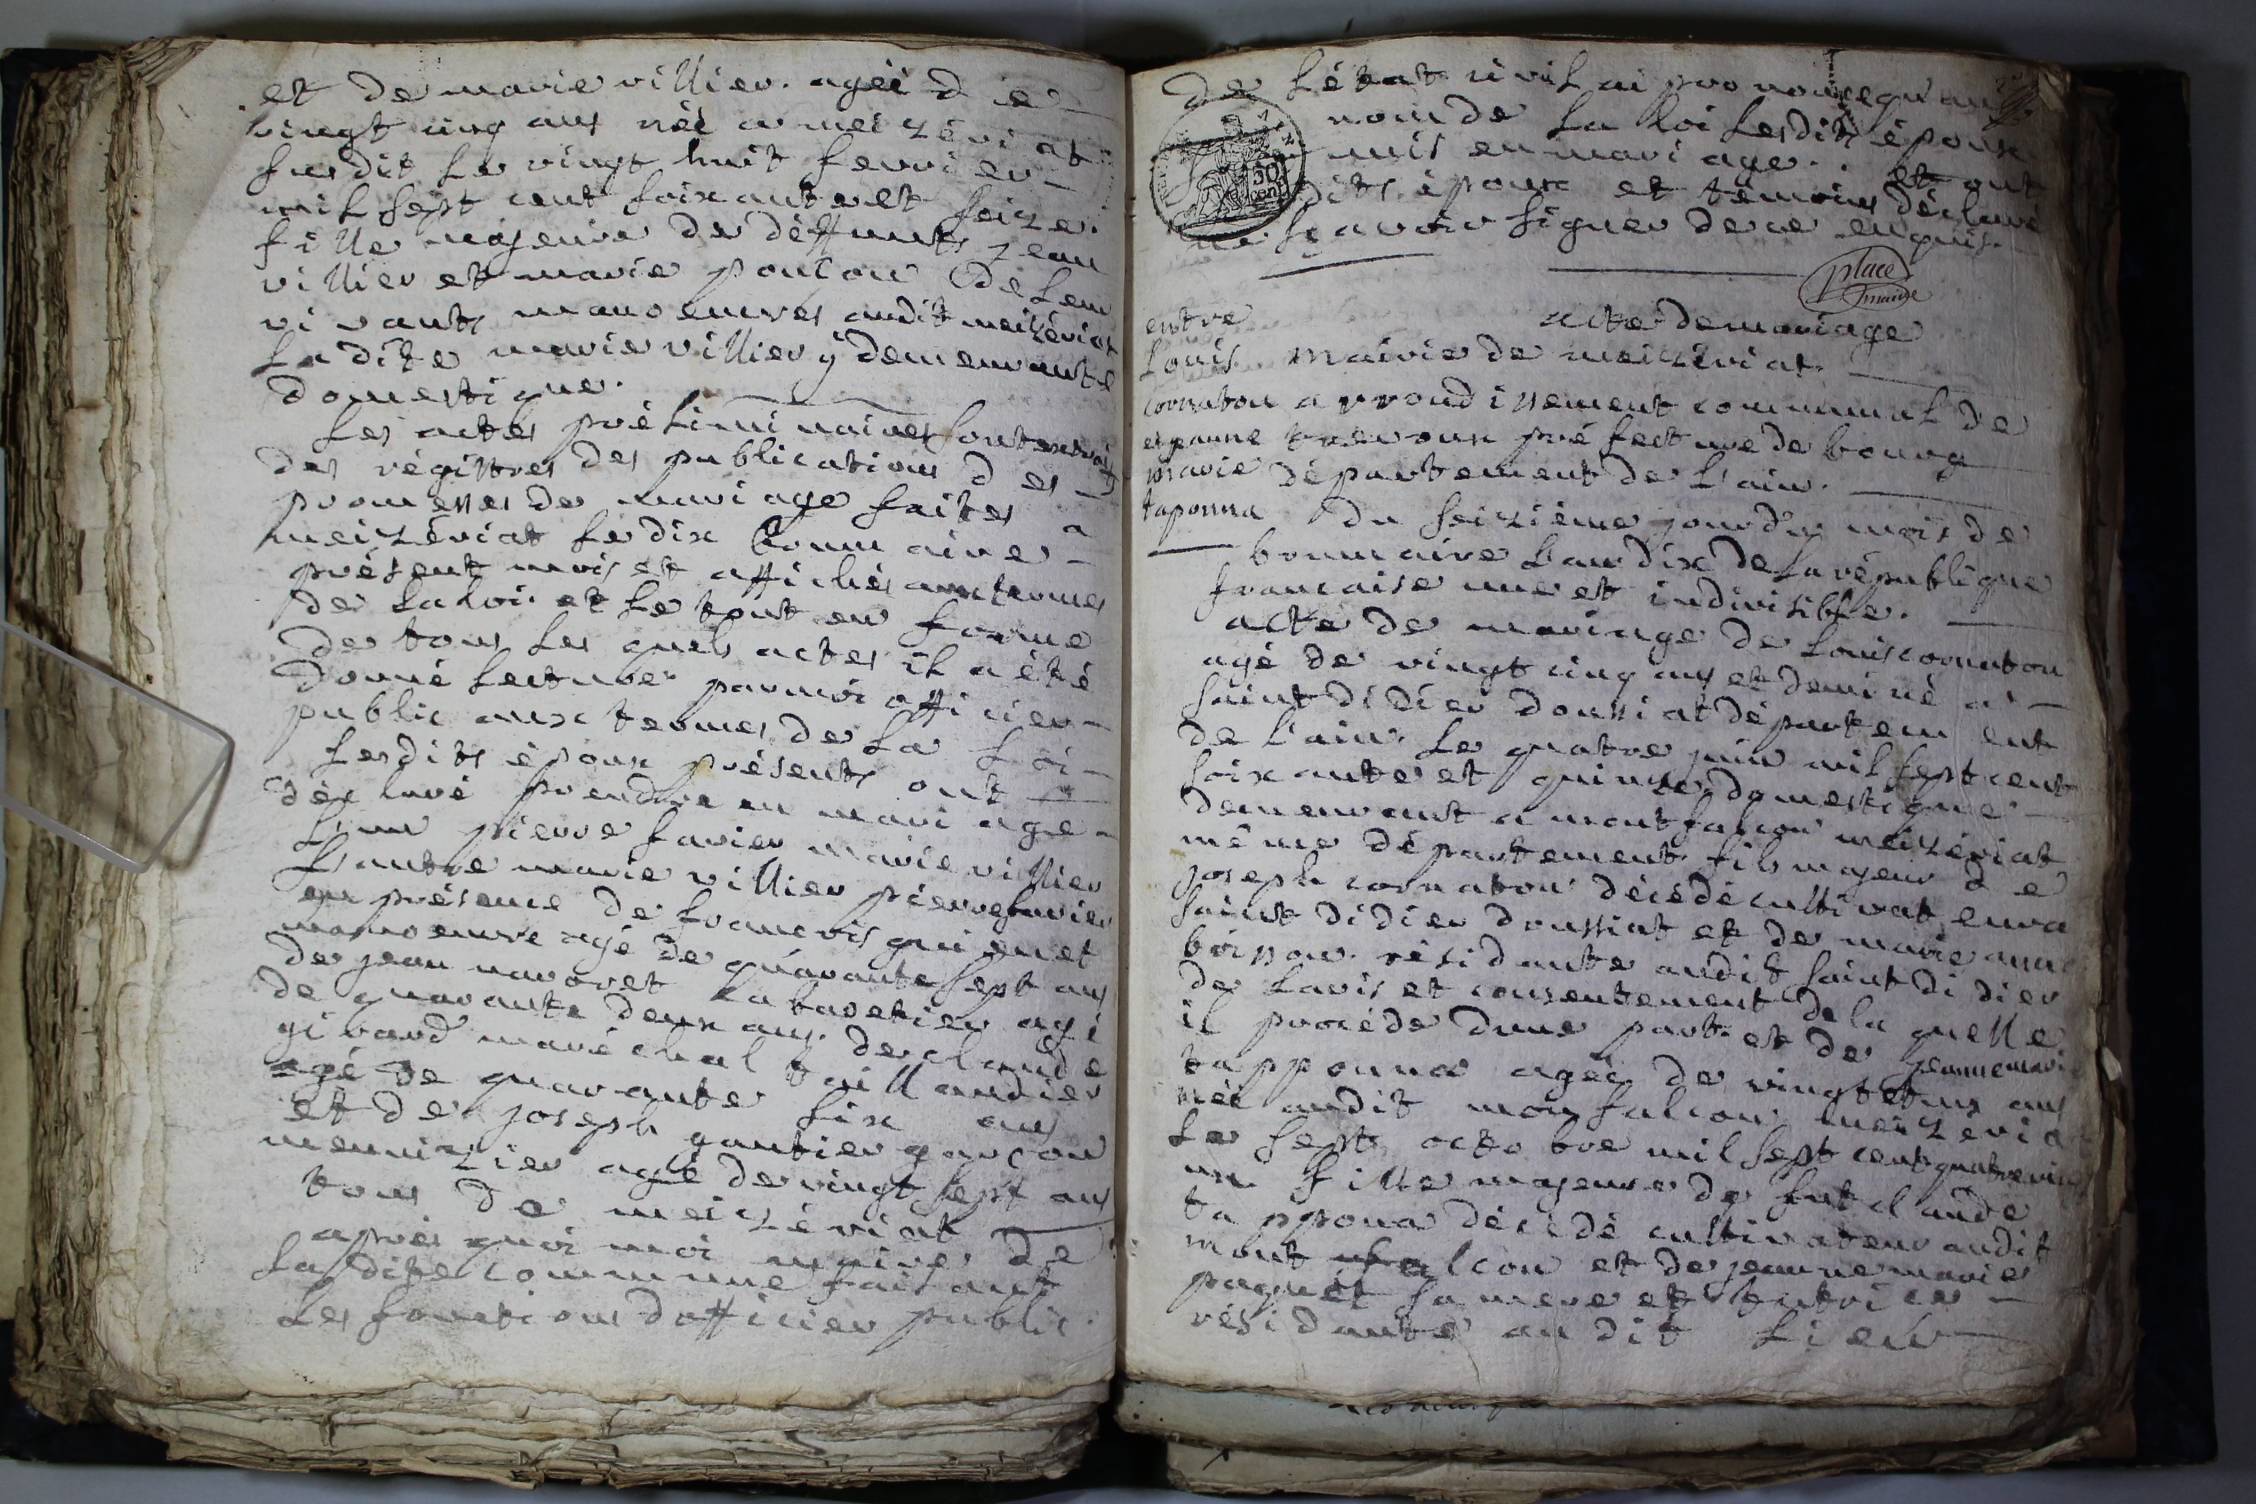 et de marie villier. ageé d e
vingt cinq ans néé a meizériat
susdit le vingt huit fevrier
mil sept cent soixante et seize.
fille majeure de déffunts jean
villier et marie poncon de leur
vivants manoeuvres audit meizériat
la dite marie villier y demeurante
domestique.
les actes préliminaires sont extraits
des régistres des publications d es
promesses de mariage faites a
meizériat le dix brumaire
présent mois et affichés aux termes
de la loi et le tout en forme
de tous les quels actes il a été
donné lecture par moi officier
public aux termes de la loi
lesdits époux présents ont
déclaré prendre en mariage
l'un pierre favier marie villier
l'autre marie villier pierre favier
en présence de francois guiguet
manoeuvre agé de quarante sept ans
de jean navoret cabaretier agé
de quarante deux ans. de claude
givard maréchal taillandier
agé de quarante six ans
et de joseph gautier garcon
menuizier agé de vingt sept ans
tous de meizériat
aprés quoi moi maire de
la dite commune faisant
les fonctions dofficier public
de létat civil ai prononcé qu'au
nom de la loi lesdits époux
unis en mariage. et ont
dits époux et témoins déclaré
ne sçavoir signer de ce enquis.
place
maire
50
cen
entre
Louis
cornaton
et jeanne
marie
taponna
acte de mariage
mairie de meizeriat.
arrondissement communal de
trevoux préfecture de bourg
département de l'ain.
du seizième jour du mois de
brumaire l'an dix de la république
francaise une et indivisible.
acte de mariage de louis cornaton
agé de vingt cinq ans et demi né a
saint didier doussiat département
de l'ain. le quatre juin mil sept cent
soixante et quinze domestique
demeurant a montfalcon meizériat
même département fils majeur d e
joseph cornaton décédé cultivateur a
saint didier doussiat et de marie anne
boisson. résidante audit saint didier
de lavis et consentement de la quelle
il procéde dune part. et de jeanne marie
tapponna ageé de vingt et un ans
néé audit montfalcon meizeria
le sept octobre mil sept cent quatre vingt
un fille majeure de fut claude
tappona décédé cultivateur audit
mont falcon et de jeanne marie
paquet sa mere et tutrice
résidante au dit lieu